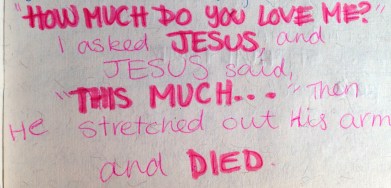 "HOW MUCH DO YOU LOVE ME?"
I asked JESUS, and
JESUS said,
"THIS MUCH..." Then
He stretched out His arm
and DIED.